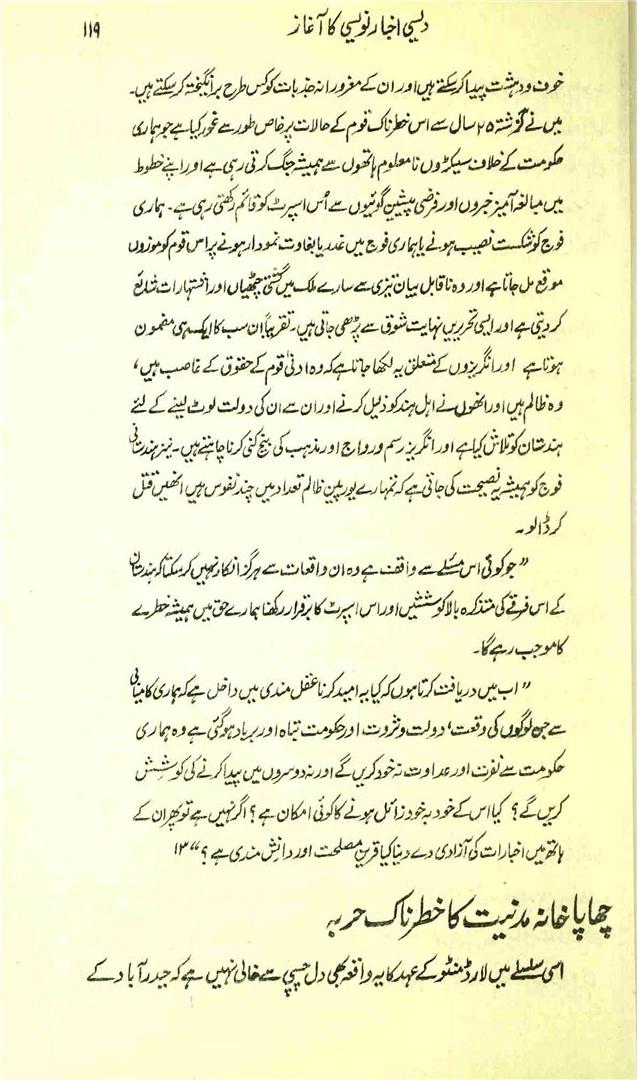 دیسی اخبار نویسی کا آغاز ۱۱۹
خوف و دہشت پیدا کر سکتے ہیں اور ان کے مغرورانہ جذبات کو کس طرح برانگیختہ کر سکتے ہیں۔
میں نے گزشتہ ۲۵ سال سے اس خطرناک قوم کے حالات پر خاص طور سے غور کیا ہے جو ہماری
حکومت کے خلاف سیکڑوں نامعلوم ہاتھوں سے ہمیشہ جنگ کرتی رہی ہے اور اپنے خطوط
میں مبالغہ آمیز خبروں اور فرضی پیشین گوئیوں سے اُس اسپرٹ کو قائم رکھتی رہی ہے۔ ہماری
فوج کو شکست نصیب ہونے یا ہماری فوج میں غدر یا بغاوت نمودار ہونے پر اس قوم کو موزوں
موقع مل جاتا ہے اور وہ ناقابل بیان تیزی سے سارے ملک میں گشتی چٹھیاں اور اشتہارات شائع
کر دیتی ہے اور ایسی تحریریں نہایت شوق سے پڑھی جاتی ہیں۔ تقریباً ان سب کا ایک ہی مضمون
ہوتا ہے اور انگریزوں کے متعلق یہ لکھا جاتا ہے کہ وہ ادنیٰ قوم کے حقوق کے غاصب ہیں،
وہ ظالم ہیں اور انھوں نے اہل ہند کو ذلیل کرنے اور ان سے ان کی دولت لوٹ لینے کے لئے
ہندستان کو تلاش کیا ہے اور انگریز رسم و رواج اور مذہب کی بیخ کنی کرنا چاہتے ہیں۔ نیز ہندستانی
فوج کو ہمیشہ یہ نصیحت کی جاتی ہے کہ تمہارے یورپین ظالم تعداد میں چند نفوس ہیں انھیں قتل
کر ڈالو۔
”جو کوئی اس مسئلے سے واقف ہے وہ ان واقعات سے ہرگز انکار نہیں کر سکتا کہ ہندستان
کے اس فرقے کی متذکرہ بالا کوششیں اور اس اسپرٹ کا برقرار رکھنا ہمارے حق میں ہمیشہ خطرے
کا موجب رہے گا۔
”اب میں دریافت کرتا ہوں کہ کیا یہ امید کرنا عقل مندی میں داخل ہے کہ ہماری کامیابی
سے جن لوگوں کی وقعت، دولت و ثروت اور حکومت تباہ اور برباد ہو گئی ہے وہ ہماری
حکومت سے نفرت اور عداوت نہ خود کریں گے اور نہ دوسروں میں پیدا کرنے کی کوشش
کریں گے؟ کیا اس کے خود بہ خود زائل ہونے کا کوئی امکان ہے؟ اگر نہیں ہے تو پھر ان کے
ہاتھ میں اخبارات کی آزادی دے دینا کیا قرین مصلحت اور دانش مندی ہے؟“ ۱۳
چھاپا خانہ مدنیت کا خطرناک حربہ
اسی سلسلے میں لارڈ منٹو کے عہد کا یہ واقعہ بھی دل چسپی سے خالی نہیں ہے کہ حیدرآباد کے